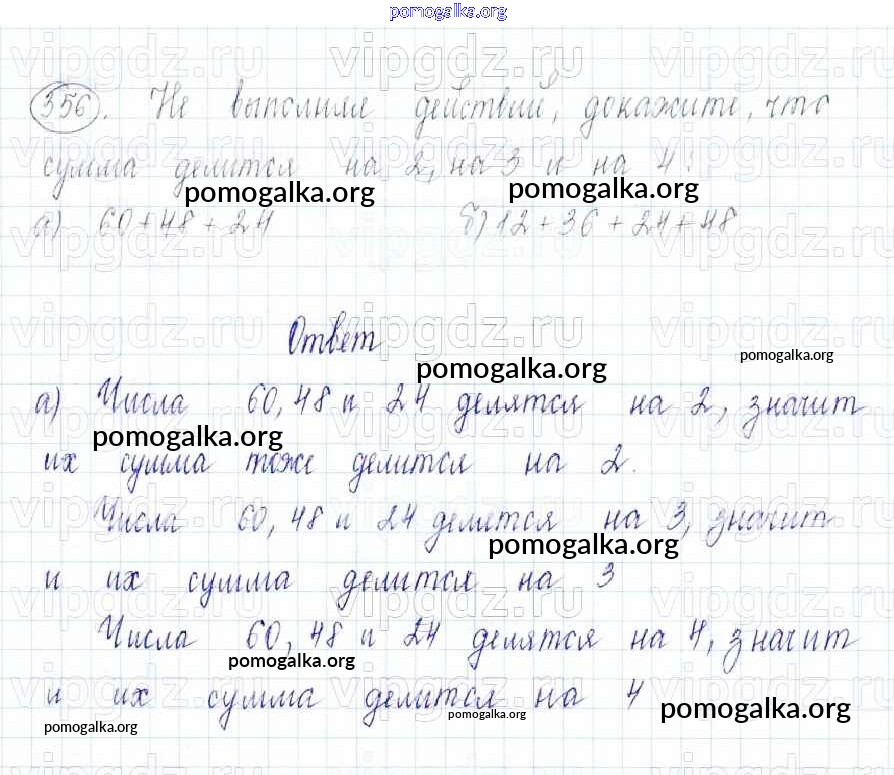 pomogalka.org
356. Не выполняя действий, докажите, что
сумма делится на 2, на 3 и на 4:
pomogalka.org pomogalka.org
а) 60+48+24 б) 12+36+24+48
Ответ
pomogalka.org pomogalka.org
а) Числа 60, 48 и 24 делятся на 2, значит
pomogalka.org
их сумма тоже делится на 2.
Числа 60, 48 и 24 делятся на 3, значит
pomogalka.org
и их сумма делится на 3
Числа 60, 48 и 24 делятся на 4, значит
pomogalka.org
и их сумма делится на 4
pomogalka.org pomogalka.org pomogalka.org
vipgdz.ru vipgdz.ru vipgdz.ru